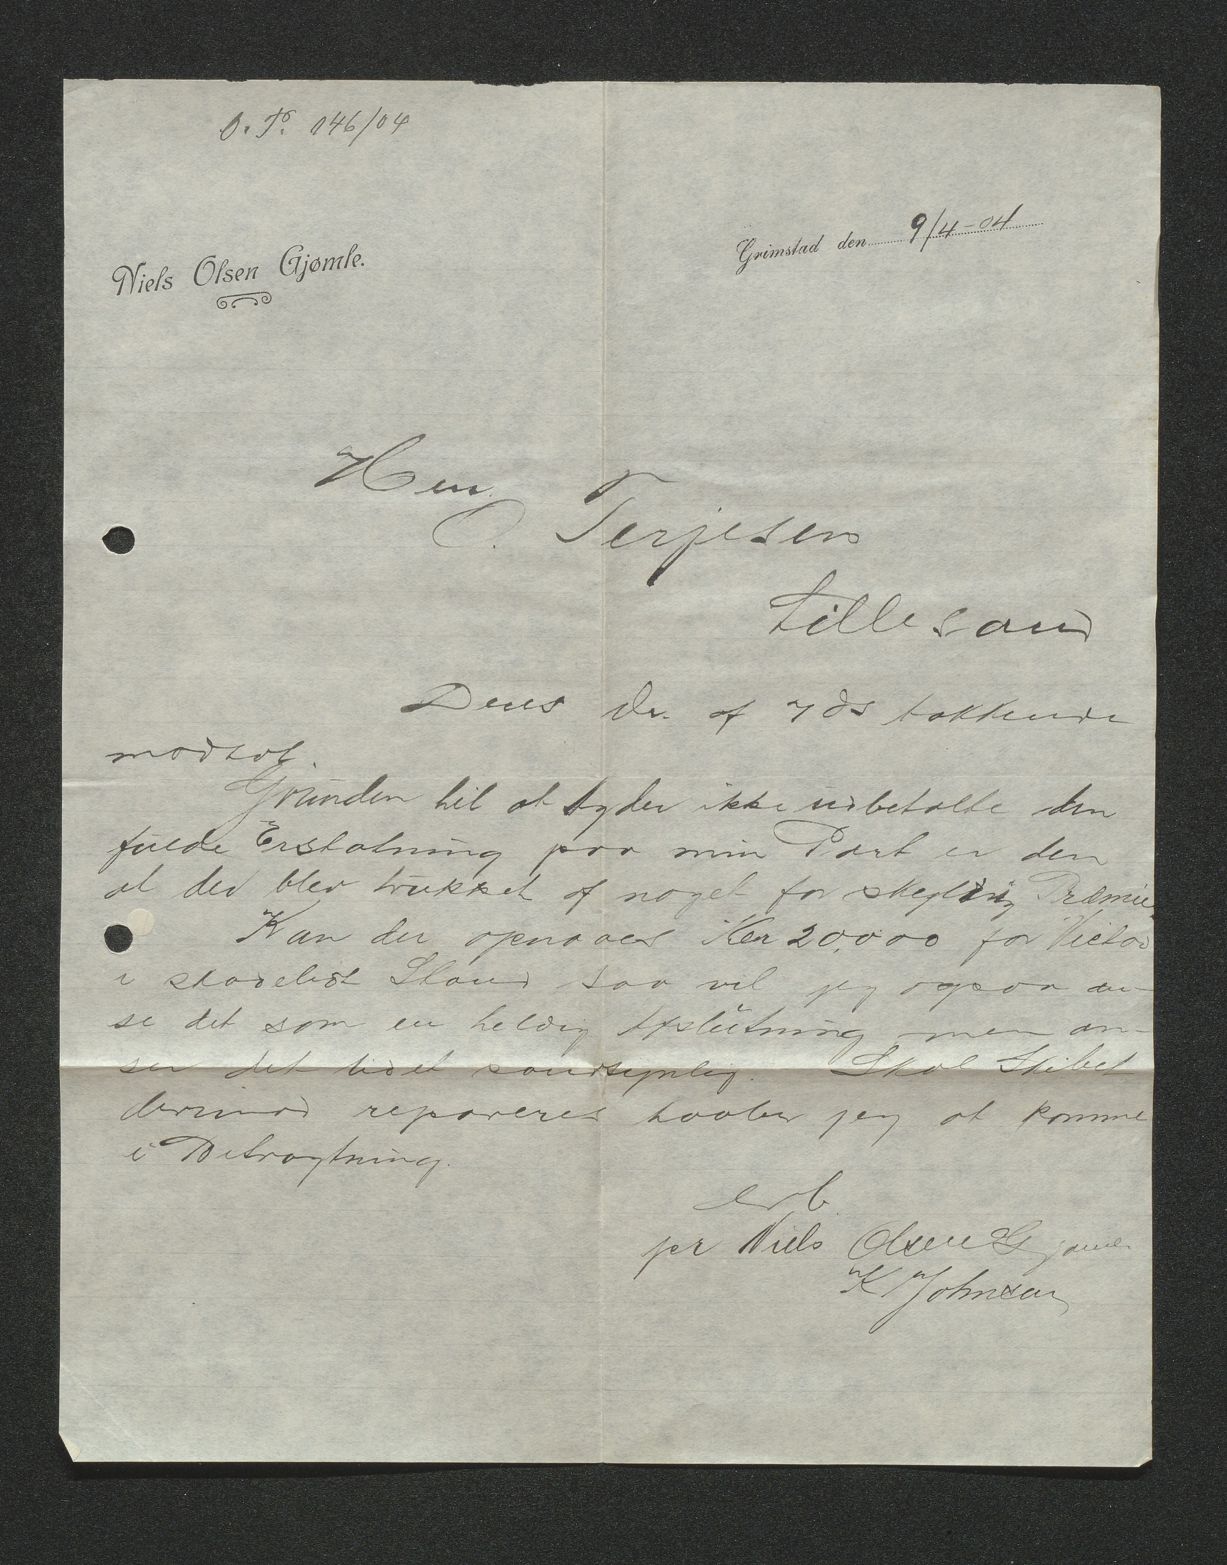 O. T. 146/04
Niels Olsen Gjømle.
Grimstad den 9/4-04
Herr
O. Terjesen
Lillesand
Deres Br. af 7 ds takkende
modtat.
Grunden til at Lyder ikke udbetalte den
fulde Erstatning paa min Part er den
at der blev trukket af noget for skyldig Præmie
Kan der opnaaes Kr 20,000 for Victor
i skadelidt Stand saa vil jeg ogsaa an-
se det som en heldig Afslutning men an-
ser det lidet sandsynlig. Skal Skibet
derimod repareres haaber jeg at komme
i Betragtning.
erb.
pr Niels Olsen Gjømle
K Johnsen